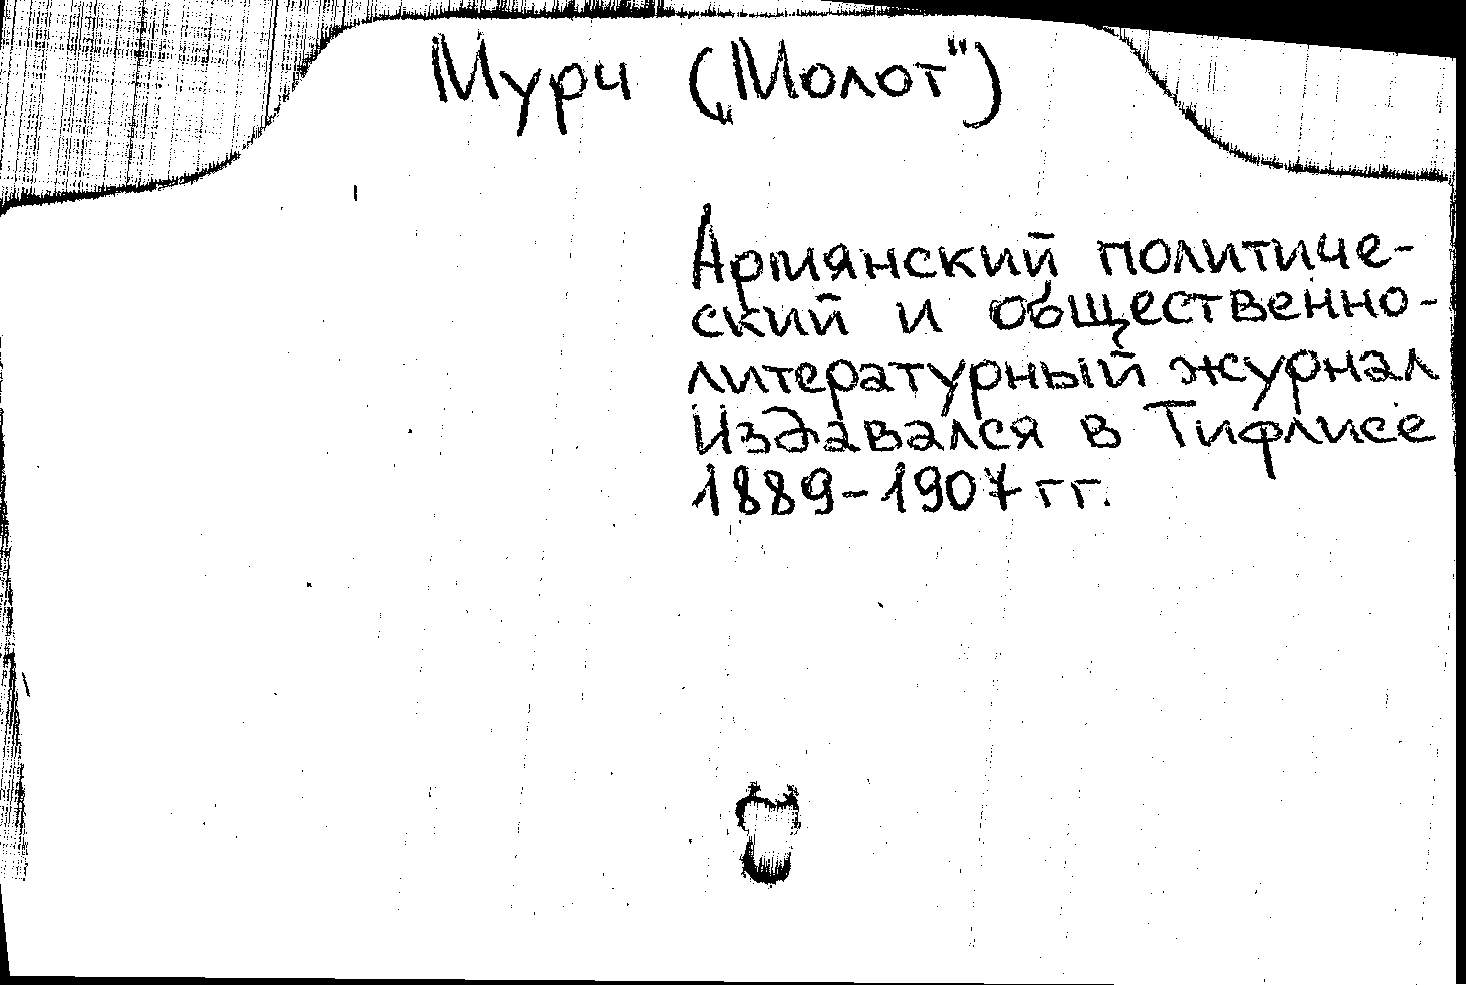 Мурч („Молот")
Армянский политиче-
ский и общественно-
литературный журнал
Издавался в Тифлисе
1889-1907 гг.